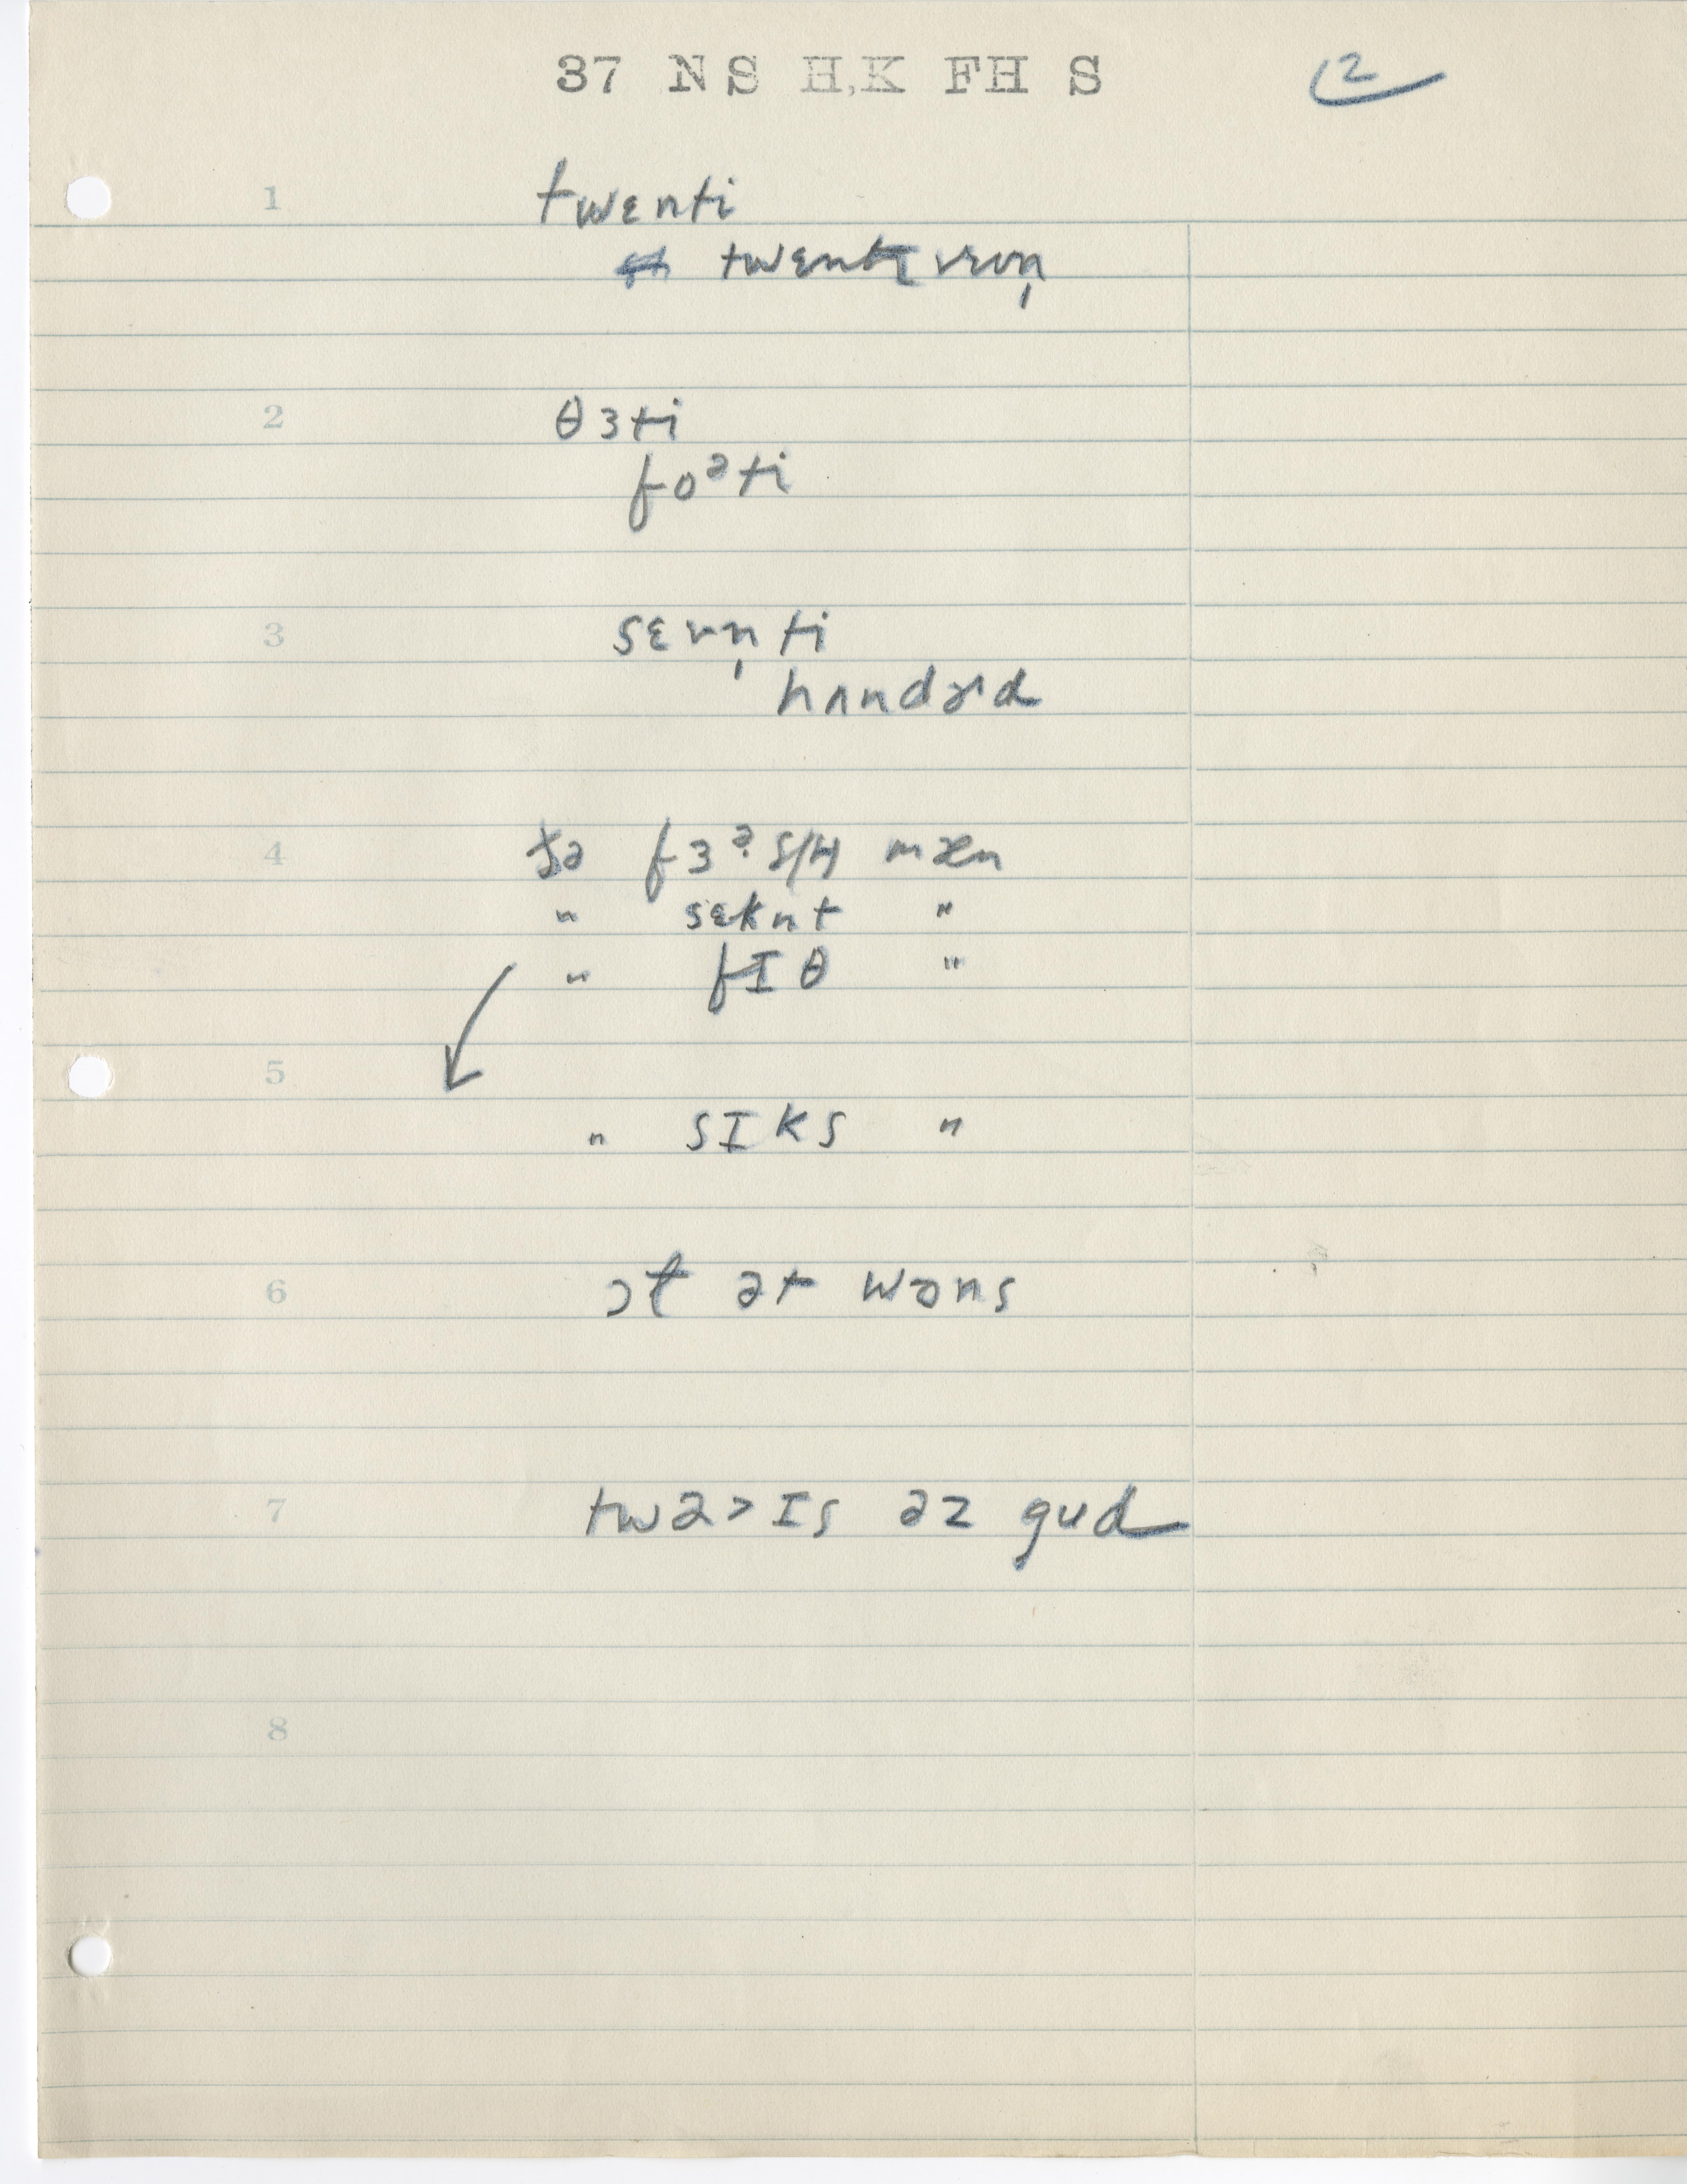 37 NS H,K FH S 12
1 twɛnti
twɛntɪ sɛvn̩
2 θɜti
foᵊti
3 sɛvn̩ti
hʌndɚd
4 ðə fɜ˞st mæn
" sɛknt "
" fɪθ "
5
" sɪks "
6 ɔɫ ət wɔns
7 twaɪs əz gud
8